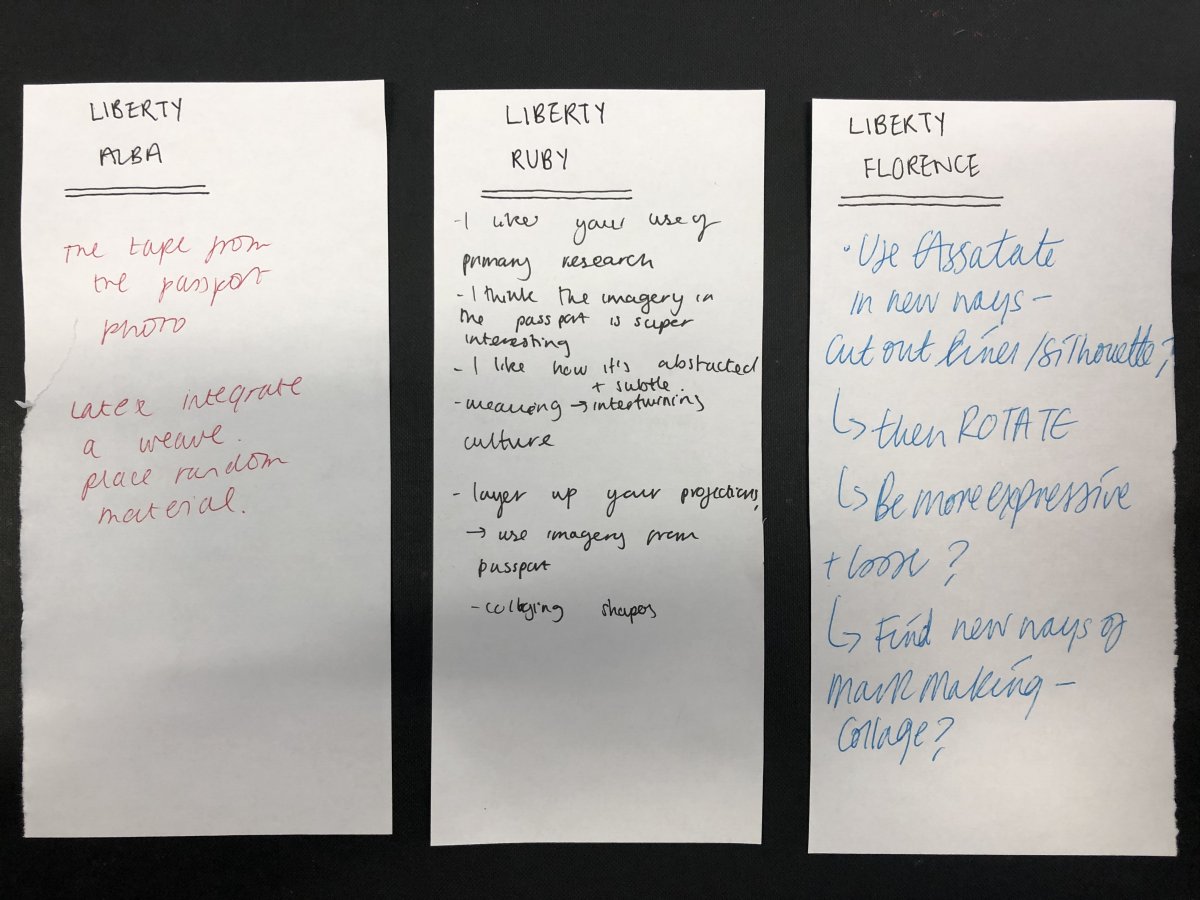 LIBERTY
ALBA
The tape from
the passport
photo
Latex integrate
a weave.
place random
material.
LIBERTY
RUBY
- I like your use of
primary research
- I think the imagery in
the passport is super
interesting
- I like how it's abstracted
+ subtle.
- meaning → intertwining
culture
- layer up your projections,
→ use imagery from
passport
- shapes
LIBERTY
FLORENCE
• Use Assatate
in new ways -
cut out lines/silhouette?
↳ then ROTATE
↳ Be more expressive
+ loose?
↳ Find new ways of
mark making -
collage?